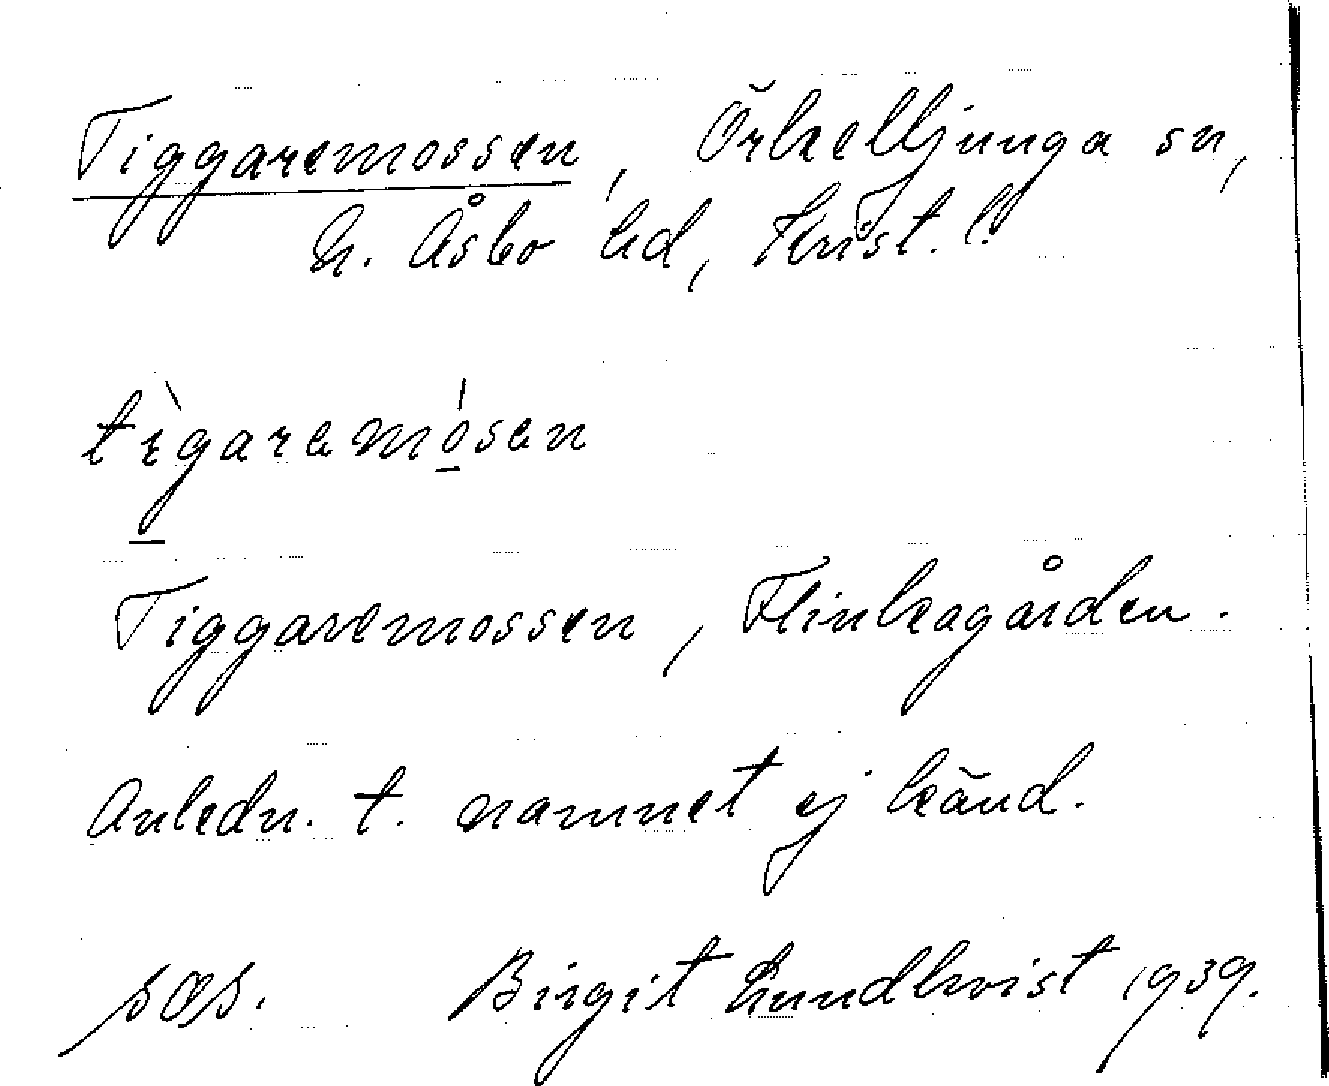 Tiggaremossen, Örkelljunga sn,
N. Åsbo hd, Krist. l.
tìgaremósen
Tiggaremossen, Flinkagården.
Anledn. t. namnet ej känd.
sæs. Birgit Lundkvist 1939.